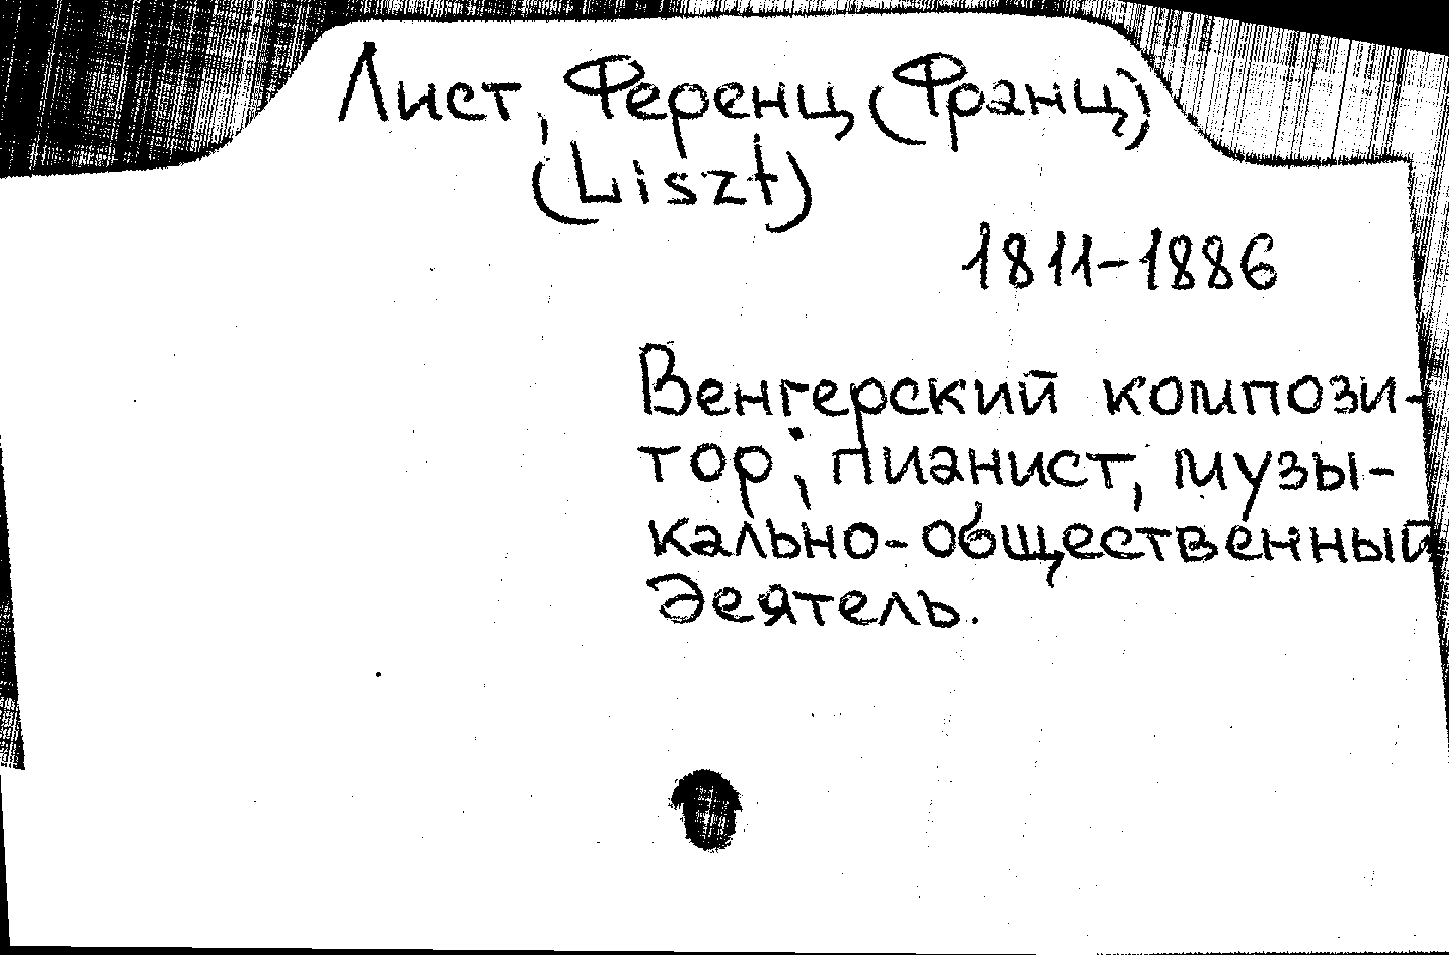 Лист, Ференц (Франц)
(Liszt)
1811-1886
Венгерский компози-
тор, пианист, музы-
кально-общественный
деятель.